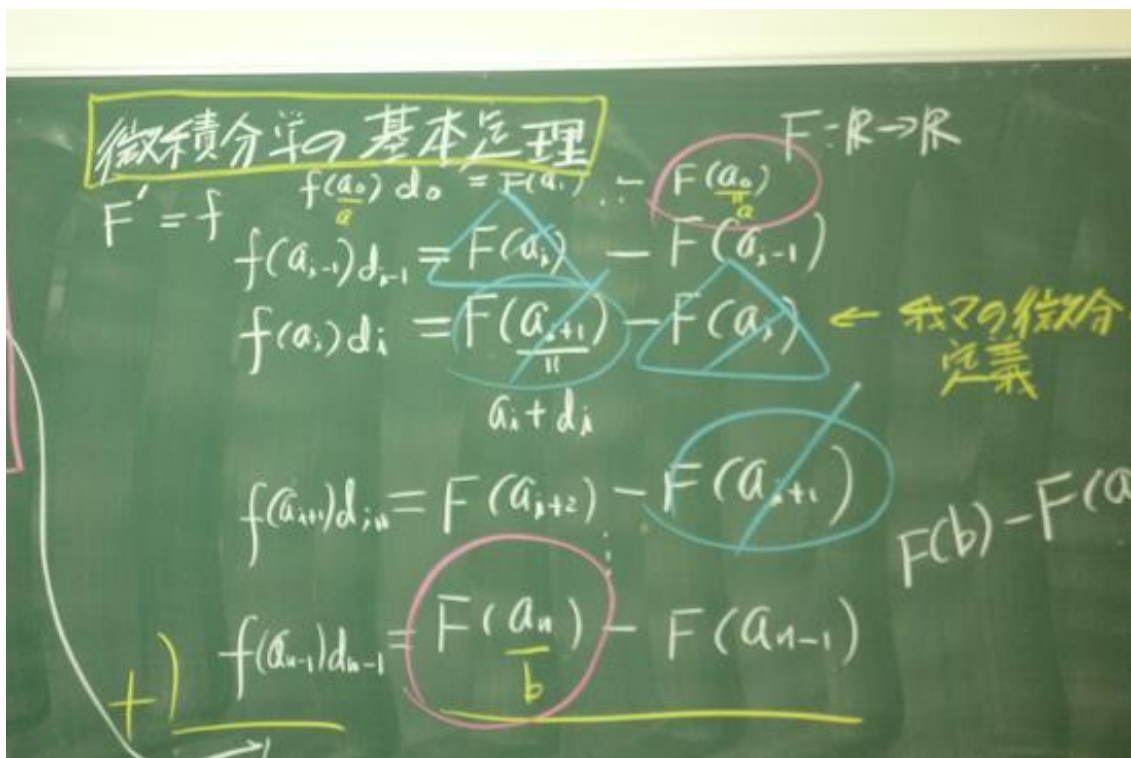 微積分学の基本定理
F: ℝ→ℝ
F' = f
f(a₀) d₀ = F(a₁) - F(a₀)
a
"
a
⋮
f(aᵢ₋₁)dᵢ₋₁ = F(aᵢ) - F(aᵢ₋₁)
f(aᵢ)dᵢ = F(aᵢ₊₁) - F(aᵢ) ←
の微分
定義
"
aᵢ + dᵢ
f(aᵢ₊₁)dᵢ₊₁ = F(aᵢ₊₂) - F(aᵢ₊₁)
⋮
F(b) - F(a
f(aₙ₋₁)dₙ₋₁ = F(aₙ) - F(aₙ₋₁)
b
+)